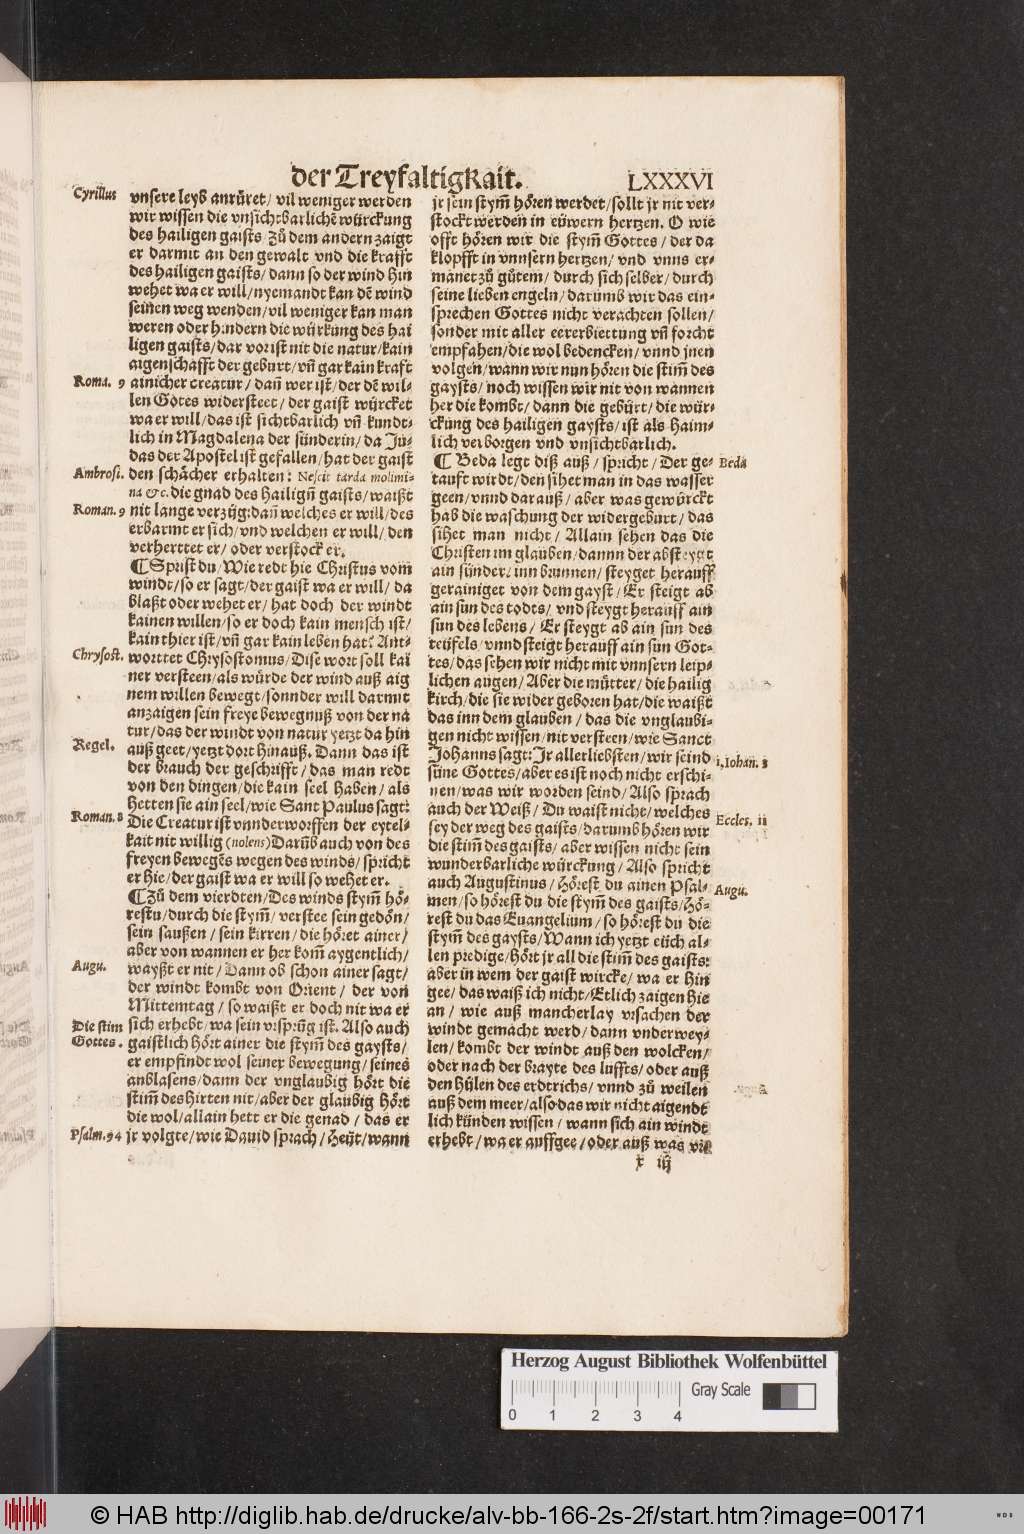 der Treyfaltigkait. LXXXVI
Cyrillus
vnsere leyb anrüret/ vil weniger werden
wir wissen die vnsichtbarlichē würckung
des hailigen gaists zů dem andern zaigt
er darmit an den gewalt vnd die krafft
des hailigen gaists/ dann so der wind hin
wehet wa er will/ nyemandt kan dē wind
seinen weg wenden/ vil weniger kan man
weren oder hindern die würkung des hai
ligen gaists/ dar vor ist nit die natur/ kain
aigenschafft der geburt/ vñ gar kain kraft
Roma. 9
ainicher creatur/ dañ wer ist/ der dē wil-
len Gotes widersteet/ der gaist würcket
wa er will/ das ist sichtbarlich vñ kundt-
lich in Magdalena der sünderin/ da Ju-
das der Apostel ist gefallen/ hat der gaist
Ambrosi.
den schächer erhalten: Nescit tarda molimi-
na &c. die gnad des hailigñ gaists/ waißt
Roman. 9
nit lange verzüg: dañ welches er will/ des
erbarmt er sich/ vnd welchen er will/ den
verherttet er/ oder verstockt er.
¶ Sprist du/ Wie redt hie Christus vom
windt/ so er sagt/ der gaist wa er will/ da
blaßt oder wehet er/ hat doch der windt
kainen willen/ so er doch kain mensch ist/
kain thier ist/ vñ gar kain leben hat? Ant-
Chrysost.
worttet Chrysostomus/ Dise wort soll kai
ner versteen/ als würde der wind auß aig
nem willen bewegt/ sonnder will darmit
anzaigen sein freye bewegnuß von der na
tur/ das der windt von natur yetzt da hin
Regel.
auß geet/ yetzt dort hinauß. Dann das ist
der brauch der geschrifft/ das man redt
von den dingen/ die kain seel haben/ als
hetten sie ain seel/ wie Sant Paulus sagt:
Roman. 8
Die Creatur ist vnnderworffen der eytel-
kait nit willig (nolens) Darūb auch von des
freyen bewegēs wegen des winds/ spricht
er hie/ der gaist wa er will so wehet er.
¶ Zů dem vierdten/ Des winds stym̄ hö-
restu/ durch die stym̄/ verstee sein gedön/
sein saußen/ sein kirren/ die höret ainer/
aber von wannen er her kom̄ aygentlich/
Augu.
wayßt er nit/ Dann ob schon ainer sagt/
der windt kombt von Orient/ der von
Mittemtag/ so waißt er doch nit wa er
Die stim
sich erhebt/ wa sein vrsprūg ist. Also auch
Gottes.
gaistlich hört ainer die stym̄ des gaysts/
er empfindt wol seiner bewegung/ seines
anblasens/ dann der vnglaubig hört die
stim̄ des hirten nit/ aber der glaubig hört
die wol/ allain hett er die genad/ das er
Psalm. 94
jr volgte/ wie Dauid sprach/ Heüt/ wann
jr sein stym̄ hören werdet/ sollt jr nit ver-
stockt werden in eüwern hertzen. O wie
offt hören wir die stym̄ Gottes/ der da
klopfft in vnnsern hertzen/ vnd vnns er-
manet zů gůtem/ durch sich selber/ durch
seine lieben engeln/ darumb wir das ein-
sprechen Gottes nicht verachten sollen/
sonder mit aller eererbiettung vñ forcht
empfahen/ die wol bedencken/ vnnd jnen
volgen/ wann wir nun hören die stim̄ des
gaysts/ noch wissen wir nit von wannen
her die kombt/ dann die gebürt/ die wür-
ckung des hailigen gaysts/ ist als haim-
lich verborgen vnd vnsichtbarlich.
¶ Beda legt diß auß/ spricht/ Der ge-
Beda
taufft wirdt/ den sihet man in das wasser
geen/ vnnd darauß/ aber was gewürckt
hab die waschung der widergeburt/ das
sihet man nicht/ Allain sehen das die
Christen im glauben/ dannn der absteygt
ain sünder inn brunnen/ steyget herauff
gerainiget von dem gayst/ Er steigt ab
ain sun des todts/ vnd steygt herauff ain
sun des lebens/ Er steygt ab ain sun des
teüfels/ vnnd steigt herauff ain sun Got-
tes/ das sehen wir nicht mit vnnsern leip-
lichen augen/ Aber die můtter/ die hailig
kirch/ die sie wider geboren hat/ die waißt
das inn dem glauben/ das die vnglaubi-
gen nicht wissen/ nit versteen/ wie Sanct
Johanns sagt: Jr allerliebsten/ wir seind
1, Iohan. 3
süne Gottes/ aber es ist noch nicht erschi-
nen/ was wir worden seind/ Also sprach
auch der Weiß/ Du waist nicht/ welches
Eccles. 11
sey der weg des gaists/ darumb hören wir
die stim̄ des gaists/ aber wissen nicht sein
wunderbarliche würckung/ Also spricht
auch Augustinus/ Hörest du ainen Psal-
Augu.
men/ so hörest du die stym̄ des gaists/ Hö-
rest du das Euangelium/ so hörest du die
stym̄ des gaysts/ Wann ich yetzt eüch al-
len predige/ hört jr all die stim̄ des gaists:
aber in wem der gaist wircke/ wa er hin
gee/ das waiß ich nicht/ Etlich zaigen hie
an/ wie auß mancherlay vrsachen der
windt gemacht werd/ dann vnderwey-
len/ kombt der windt auß den wolcken/
oder nach der brayte des luffts/ oder auß
den hülen des erdtrichs/ vnnd zů weilen
auß dem meer/ also das wir nicht aigendt
lich künden wissen/ wann sich ain windt
erhebt/ wa er auffgee/ oder auß was vr-
x iij
Herzog August Bibliothek Wolfenbüttel
Gray Scale
0 1 2 3 4
© HAB http://diglib.hab.de/drucke/alv-bb-166-2s-2f/start.htm?image=00171